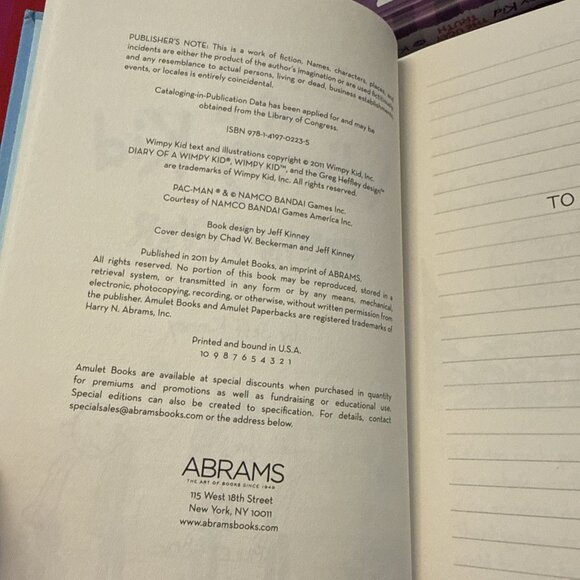 PUBLISHER'S NOTE: This is a work of fiction. Names, characters, places, and
incidents are either the product of the author's imagination or are used fictitiously,
and any resemblance to actual persons, living or dead, business establishments,
events, or locales is entirely coincidental.
Cataloging-in-Publication Data has been applied for and may be
obtained from the Library of Congress.
ISBN 978-1-4197-0223-5
Wimpy Kid text and illustrations copyright © 2011 Wimpy Kid, Inc.
DIARY OF A WIMPY KID®, WIMPY KID™, and the Greg Heffley design™
are trademarks of Wimpy Kid, Inc. All rights reserved.
PAC-MAN ® & © NAMCO BANDAI Games Inc.
Courtesy of NAMCO BANDAI Games America Inc.
Book design by Jeff Kinney
Cover design by Chad W. Beckerman and Jeff Kinney
Published in 2011 by Amulet Books, an imprint of ABRAMS.
All rights reserved. No portion of this book may be reproduced, stored in a
retrieval system, or transmitted in any form or by any means, mechanical,
electronic, photocopying, recording, or otherwise, without written permission from
the publisher. Amulet Books and Amulet Paperbacks are registered trademarks of
Harry N. Abrams, Inc.
Printed and bound in U.S.A.
10 9 8 7 6 5 4 3 2 1
Amulet Books are available at special discounts when purchased in quantity
for premiums and promotions as well as fundraising or educational use.
Special editions can also be created to specification. For details, contact
specialsales@abramsbooks.com or the address below.
ABRAMS
THE ART OF BOOKS SINCE 1949
115 West 18th Street
New York, NY 10011
www.abramsbooks.com
TO
Kid
TRUTH